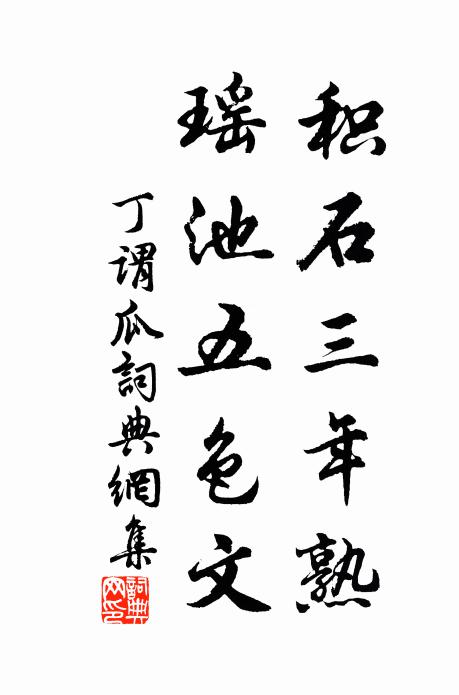 积石三年熟
瑶池五色文
丁谓瓜詞典網集
詞典
网印